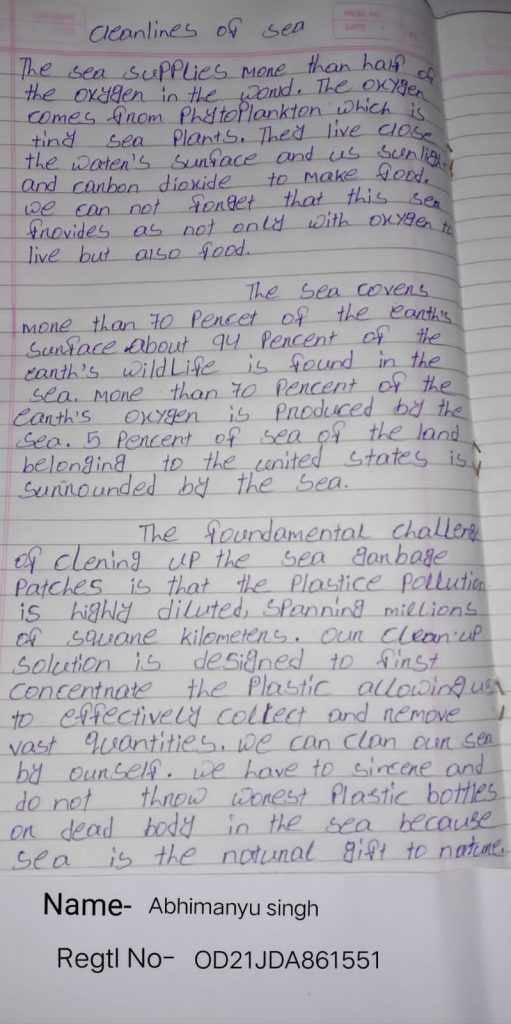 Cleanlines of sea
PAGE NO.
DATE
The sea supplies more than half of
the oxygen in the world. The oxygen
comes from Phytoplankton which is
tiny sea Plants. They live close
the water's surface and us sunligh
and carbon dioxide to make food.
we can not forget that this sea
frovides as not only with oxygen to
live but also food.
The sea covers
more than 70 Percet of the earth's
surface about 94 Percent of the
earth's wildLife is found in the
sea. more than 70 Percent of the
earth's oxygen is Produced by the
sea. 5 Percent of sea of the land
belonging to the united states is
surrounded by the sea.
The foundamental challeng
of clening up the sea garbage
Patches is that the Plastice Pollution
is highly diluted, spanning millions
of square kilometers. our clean-up
solution is designed to first
concentrate the Plastic allowing us
to effectively collect and remove
vast quantities. we can clan our sea
by ourself. we have to sircere and
do not throw worest Plastic bottles
or dead body in the sea because
sea is the natural gift to nature.
Name- Abhimanyu singh
Regtl No- OD21JDA861551